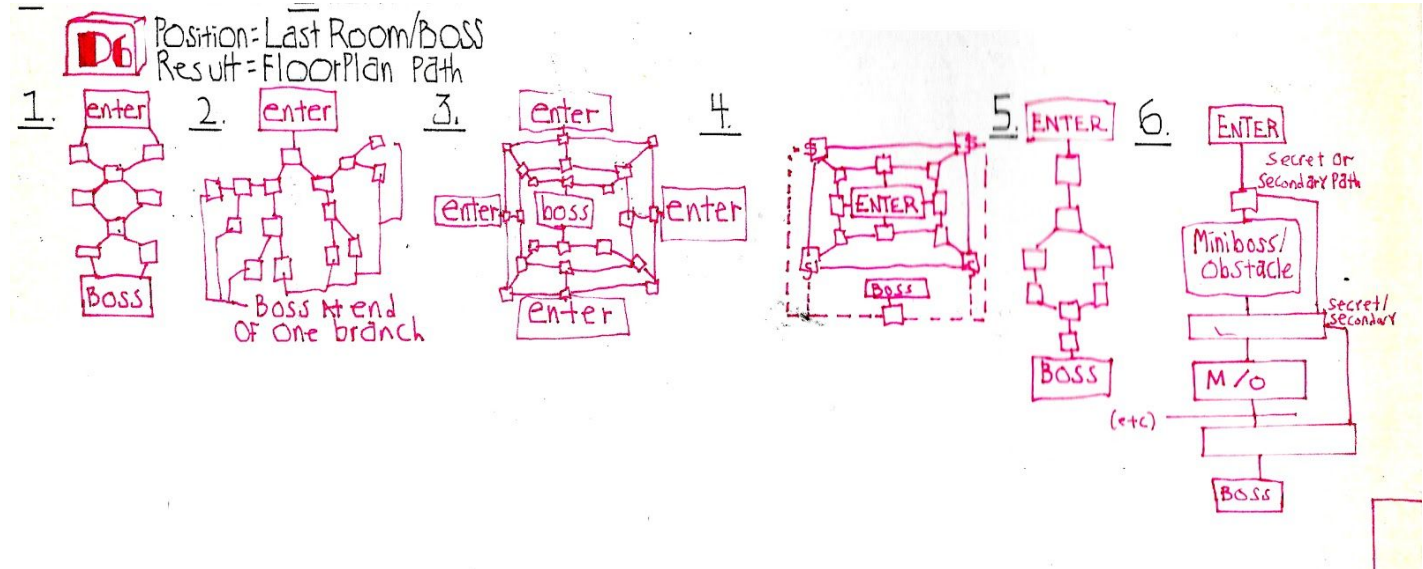 D6
Position=Last Room/Boss
Result=FloorPlan Path
1.
enter
BOSS
2.
enter
Boss At end
Of One branch
3.
enter
enter
boss
enter
enter
4.
$
$
ENTER
$
$
BOSS
5.
ENTER
BOSS
6.
ENTER
Secret Or
Secondary Path
Miniboss/
Obstacle
secret/
secondary
M/O
(etc)
BOSS